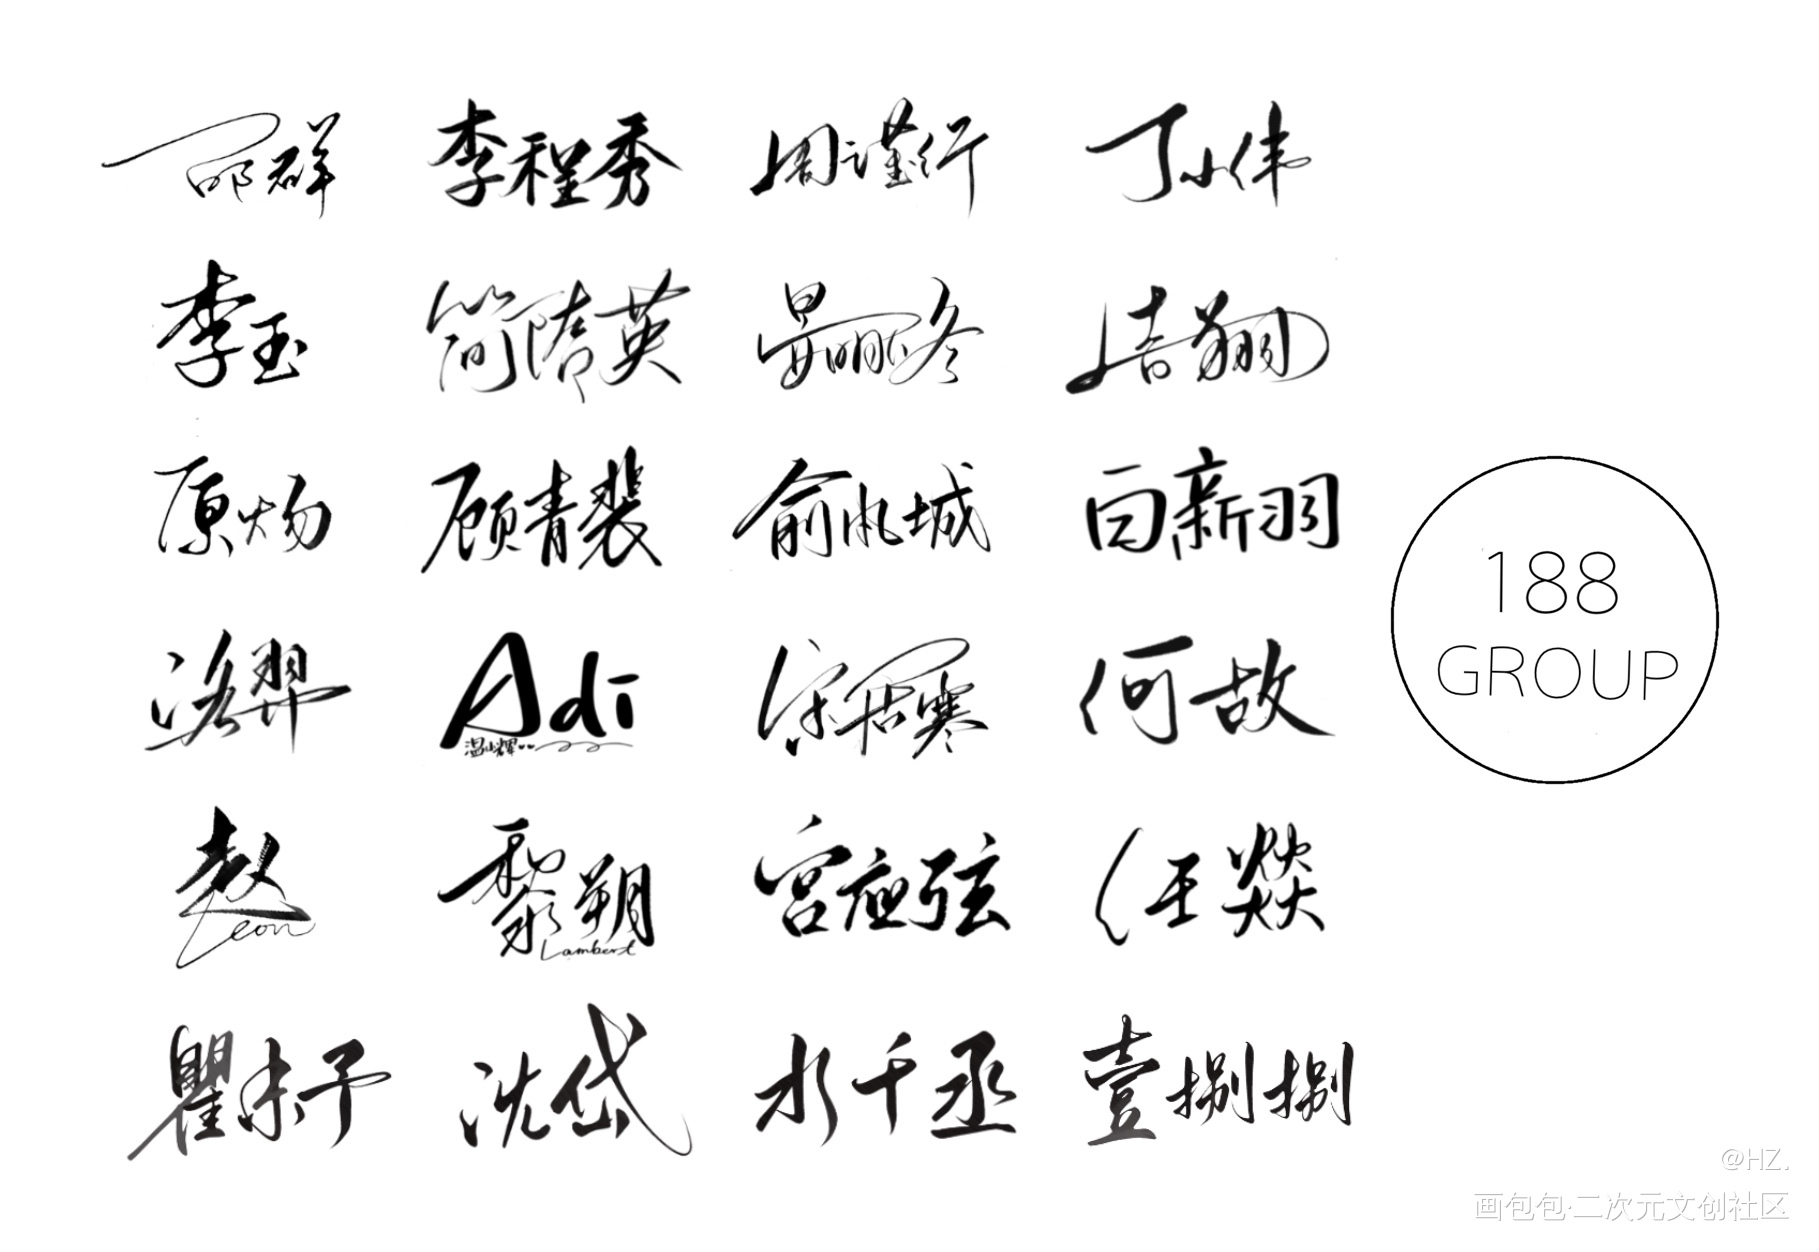 邵群 李程秀 周谨行 丁小伟
李玉 简隋英 晏明修 周翔
原炀 顾青裴 俞风城 白新羽
洛羿 Adi 宋居寒 何故
温小辉
赵 黎朔 宫应弦 任燚
Leon Lambert
瞿末予 沈岱 水千丞 壹捌捌
188
GROUP
@HZ.
画包包·二次元文创社区